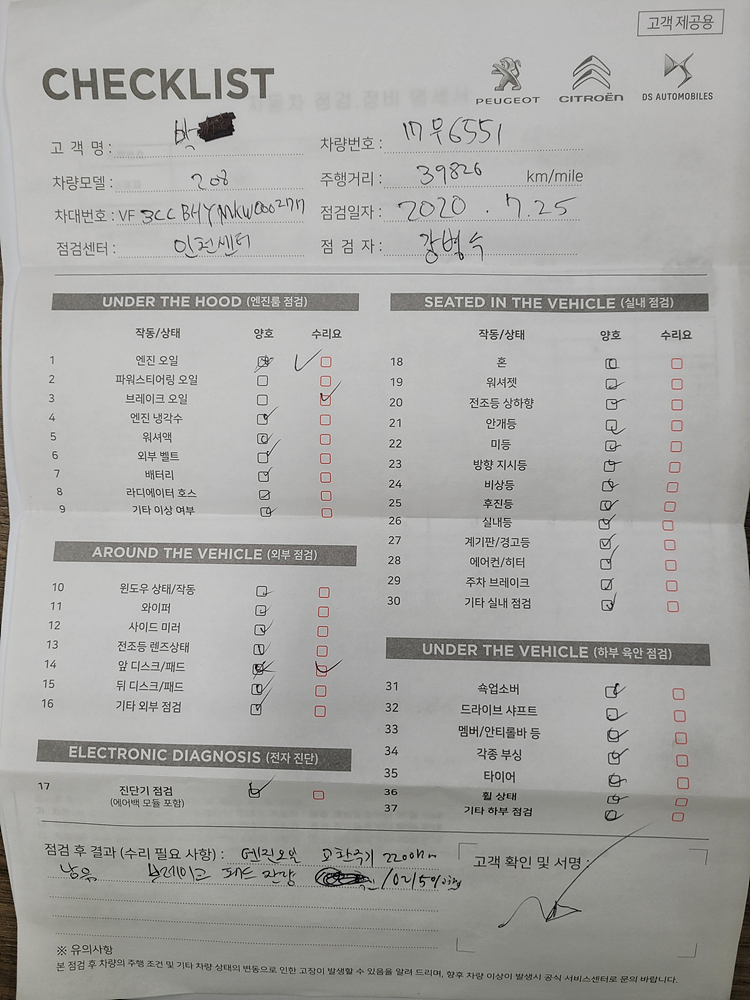 고객 제공용
CHECKLIST
PEUGEOT CITROËN DS AUTOMOBILES
고 객 명 : 박
차량번호 : 17무6551
차량모델 : 208
주행거리 : 39826 km/mile
차대번호 : VF 3CCBHYMKW000277
점검일자 : 2020 . 7.25
점검센터 : 인천센터
점 검 자 : 강병수
UNDER THE HOOD (엔진룸 점검)
작동/상태 양호 수리요
1 엔진 오일
2 파워스티어링 오일
3 브레이크 오일
4 엔진 냉각수
5 워셔액
6 외부 벨트
7 배터리
8 라디에이터 호스
9 기타 이상 여부
AROUND THE VEHICLE (외부 점검)
10 윈도우 상태/작동
11 와이퍼
12 사이드 미러
13 전조등 렌즈상태
14 앞 디스크/패드
15 뒤 디스크/패드
16 기타 외부 점검
ELECTRONIC DIAGNOSIS (전자 진단)
17 진단기 점검
(에어백 모듈 포함)
SEATED IN THE VEHICLE (실내 점검)
작동/상태 양호 수리요
18 혼
19 워셔젯
20 전조등 상하향
21 안개등
22 미등
23 방향 지시등
24 비상등
25 후진등
26 실내등
27 계기판/경고등
28 에어컨/히터
29 주차 브레이크
30 기타 실내 점검
UNDER THE VEHICLE (하부 육안 점검)
31 쇽업소버
32 드라이브 샤프트
33 멤버/안티롤바 등
34 각종 부싱
35 타이어
36 휠 상태
37 기타 하부 점검
점검 후 결과 (수리 필요 사항) : 엔진오일 교환주기 2200km
남음 브레이크 패드 잔량
고객 확인 및 서명 :
※ 유의사항
본 점검 후 차량의 주행 조건 및 기타 차량 상태의 변동으로 인한 고장이 발생할 수 있음을 알려 드리며, 향후 차량 이상이 발생시 공식 서비스센터로 문의 바랍니다.